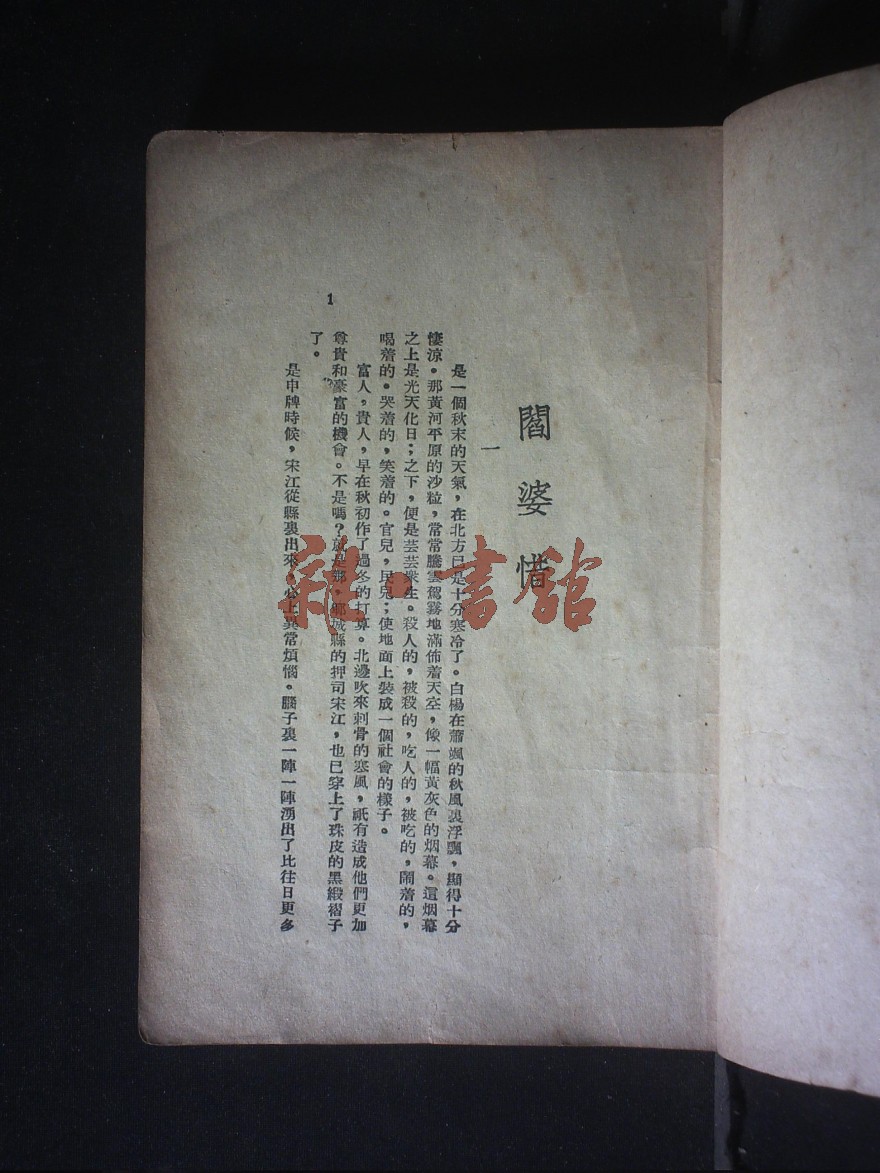 閻婆惜
一
是一個秋末的天氣，在北方已是十分寒冷了。白楊在蕭颯的秋風裏浮飄，顯得十分
悽涼。那黃河平原的沙粒，常常騰雲駕霧地滿佈着天空，像一幅黃灰色的烟幕。這烟幕
之上是光天化日；之下，便是芸芸衆生。殺人的，被殺的，吃人的，被吃的，鬧着的，
喝着的。哭着的，笑着的。官兒，民兒；使地面上裝成一個社會的樣子。
富人，貴人，早在秋初作了過冬的打算。北邊吹來刺骨的寒風，祇有造成他們更加
尊貴和豪富的機會。不是嗎？就是那，鄆城縣的押司宋江，也已穿上了珠皮的黑緞褶子
了。
是申牌時候，宋江從縣裏出來，心上異常煩惱。腦子裏一陣一陣湧出了比往日更多
1
雜·書館